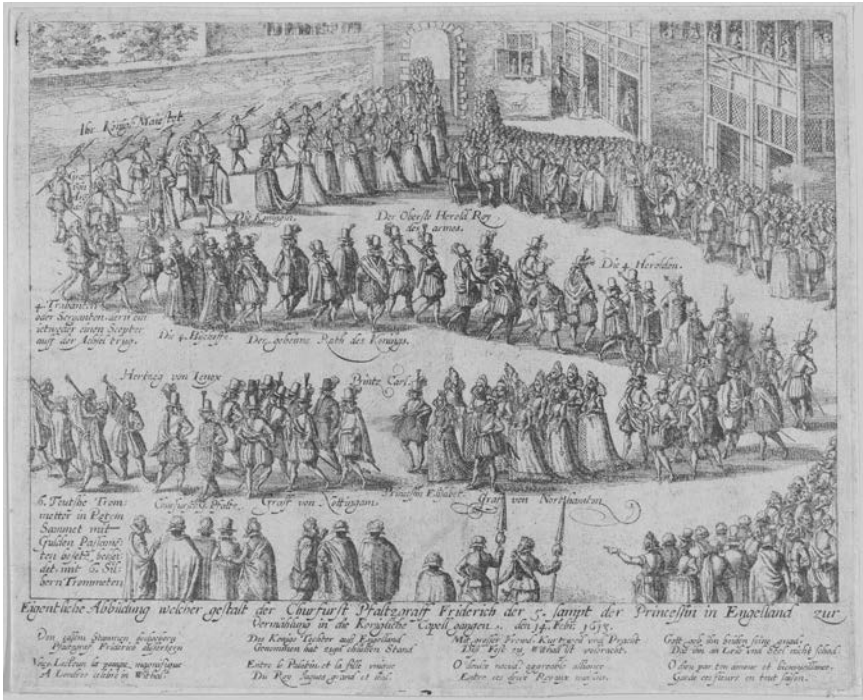 Ihr Königl: Maiestyt.
Die Königin.
Der Oberste Herold Roy
des armes.
Die 4. Herolden.
4. Trabanten
oder Servanten, dern ein
ietweder einen Scepter
auff der Achsel trug.
Die 4. Bischoffe.
Der geheime Rath des Königs.
Hertzog von Lenox
Printz Carl.
6. Teutsche Trom-
metter in Rotem
Sammet mit
Gulden Passemē-
ten besetzt,
det, mit 6. Sil-
bern Trommeten
Churfurst G. Pfaltz.
Graff von Nottingam.
Princessin Elisabet.
Graff von Northamtun
Eigentliche Abbildung welcher gestalt der Churfurst Pfaltzgraff Friderich der 5. sampt der Princessin in Engelland zur
Vermählung in die Königliche Capell gangen. den 14. Febr: 1613.
Den
Pfaltzgraff Friderich
Voicy Lecteur la pompe magnifique
A Londres celebré en Withal.
Des Königs Tochter aus Engelland
Genommen hat zum ehlichen Stand
Entre le Palatin et la fille unique
Du Roy Jaques grand et
Mit grosser Freud, Kurtzweil und Pracht
Dies Fest zu Withal ist volbracht.
O douce nouv: aggreable alliance
Entre ces deux Royaux
Gott geb ihn beiden seine gnad,
Das ihn an Leib und Seel nicht schad.
O dieu par ton amour et bienveuillance,
Garde ces fleurs en tout saison.